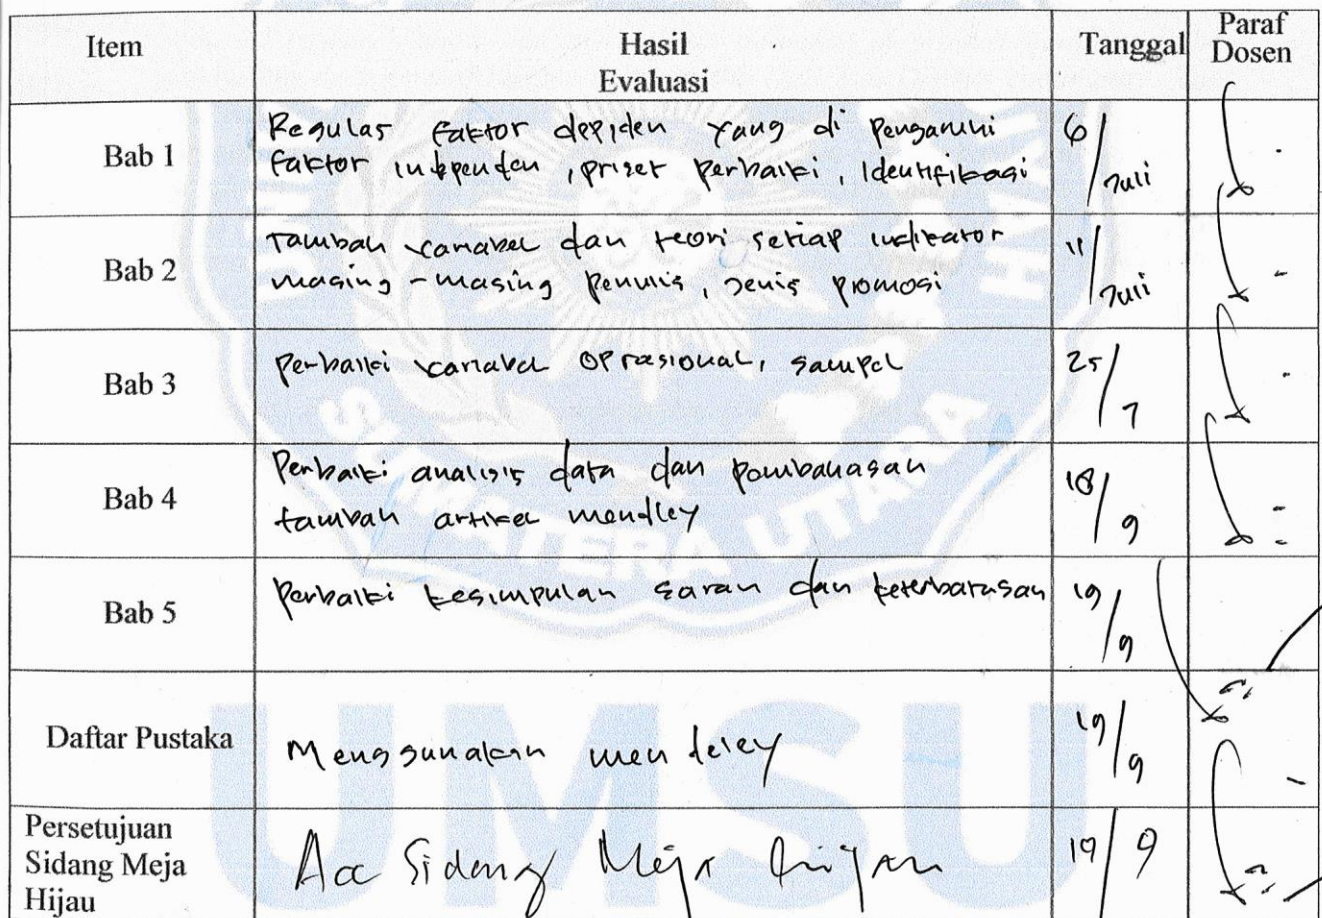 Item Hasil Evaluasi Tanggal Paraf Dosen
Bab 1
Regulas faktor depiden yang di pengaruhi
faktor independen, priset perbaiki, Identifikasi
6/Juli
Bab 2
Tambah variabel dan teori setiap indikator
masing-masing penulis, Jenis promosi
11/Juli
Bab 3
Perbaiki variabel oprasional, sampel
25/7
Bab 4
Perbaiki analisis data dan pombahasan
tambah artikel mendley
18/9
Bab 5
Perbaiki kesimpulan saran dan keterbatasan
19/9
Daftar Pustaka
Menggunakan mendeley
19/9
Persetujuan
Sidang Meja
Hijau
Acc Sidang Meja Hijau
19/9
SUMATERA UTARA
UMSU